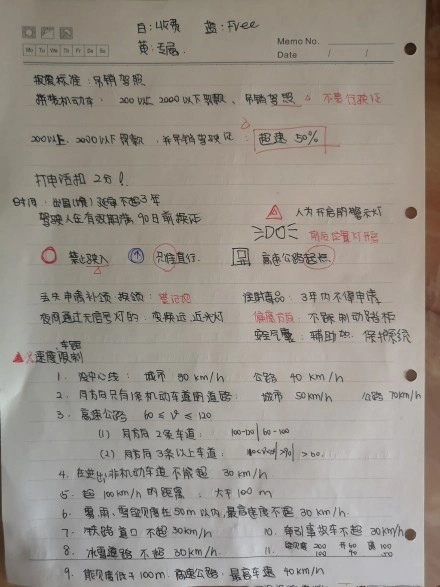 白：收费 蓝：Free
黄：专属
Mo Tu We Th Fr Sa Su
Memo No.
Date / /
报废标准：吊销驾照
拼装机动车：200以上 2000以下罚款、吊销驾照 不是行驶证
200以上、2000以下罚款，并吊销驾驶证：超速 50%
打电话扣 2分！
延期不超3年
驾驶人在有效期满90日前换证
人为开启的警示灯
前后位置灯开启
禁止驶入 只准直行 高速公路起点
丢失申请补领、换领：登记地
注射毒品：3年内不得申请
夜间通过无信号灯的：变换远、近光灯
不踩制动踏板
安全气囊：辅助驾、保护系统
车距
速度限制
1. 没中心线： 城市 30 km/h 公路 40 km/h
2. 同方向只有1条机动车道的道路： 城市 50km/h 公路 70km/h
3. 高速公路 60 ≤ V ≤ 120
(1) 同方向 2条车道： 100-120 | 60-100
(2) 同方向 3条以上车道：
4. 在进出非机动车道不能超 30 km/h
5. 超 100 km/h 的距离：大于 100 m
6. 雾、雨、雪能见度在50m以内，最高速度不超 30 km/h.
7. 铁路道口 不超 30km/h
10. 牵引事故车不超 30km/h
8. 冰雪道路 不超 30 km/h.
11. 能见度 200 60 100
9. 能见度低于100m. 高速公路. 最高车速 40 km/h